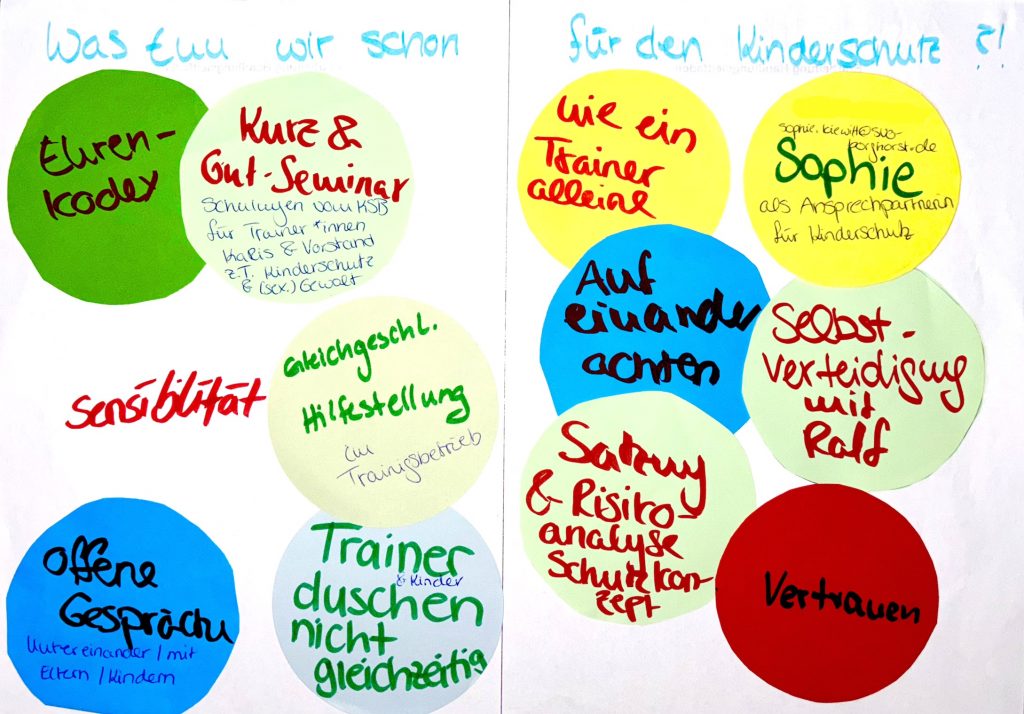 Was tuu wir schon für den Kinderschutz ?!
Ehren-
kodex
Kurz &
Gut-Seminar
Schulungen vom KSB
für Trainer*innen
KaRis & Vorstand
z.T. Kinderschutz
& (sex.) Gewalt
sensiblität
Gleichgeschl.
Hilfestellung
im
Trainigsbetrieb
offene
Gespräche
Untereinander / mit
Eltern / Kindern
Trainer
& Kinder
duschen
nicht
gleichzeitig
nie ein
Trainer
alleine
sophie.kiewitt@sv3-
borghorst.de
Sophie
als Ansprechpartnerin
für Kinderschutz
Auf
einander
achten
Selbst-
verteidigung
mit
Ralf
Satzung
& Risiko-
analyse
Schutzkon-
zept
Vertrauen